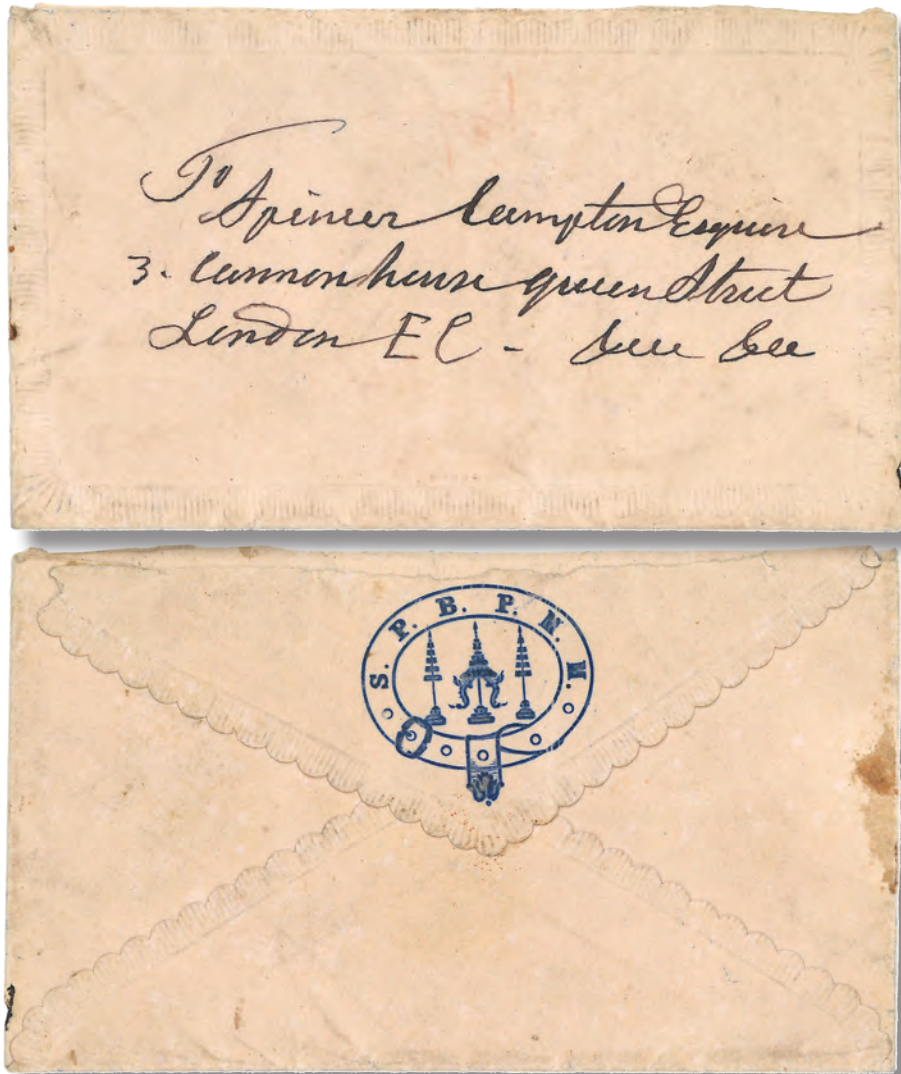 To
Spincer Campton Esquire
3. Cannon house queen Street
London EC -
S. P. B. P. M. M.